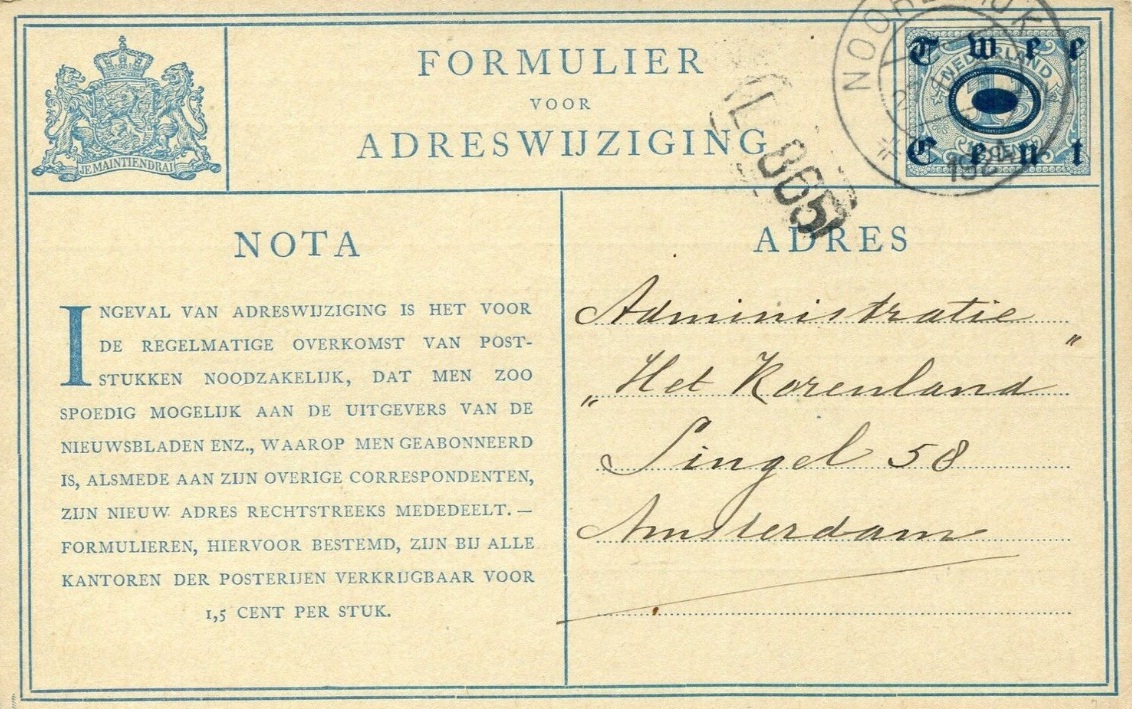 FORMULIER
VOOR
ADRESWIJZIGING
JE MAINTIENDRAI
Twee
NEDERLAND
Cent
1924
865
NOTA
INGEVAL VAN ADRESWIJZIGING IS HET VOOR
DE REGELMATIGE OVERKOMST VAN POST-
STUKKEN NOODZAKELIJK, DAT MEN ZOO
SPOEDIG MOGELIJK AAN DE UITGEVERS VAN DE
NIEUWSBLADEN ENZ., WAAROP MEN GEABONNEERD
IS, ALSMEDE AAN ZIJN OVERIGE CORRESPONDENTEN,
ZIJN NIEUW ADRES RECHTSTREEKS MEDEDEELT. —
FORMULIEREN, HIERVOOR BESTEMD, ZIJN BIJ ALLE
KANTOREN DER POSTERIJEN VERKRIJGBAAR VOOR
1,5 CENT PER STUK.
ADRES
Administratie
„Het Korenland"
Singel 58
Amsterdam